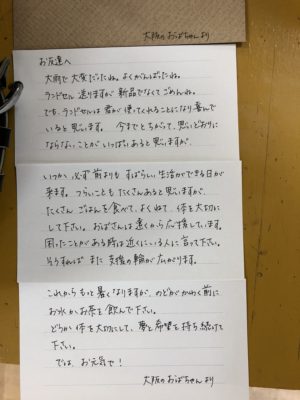 大阪のおばちゃんより
お友達へ
大雨で大変だったね。よくがんばったね。
ランドセル送りますが新品でなくてごめんね。
でも、ランドセルは君が使ってくれることになり喜んで
いると思います。今までとちがって、思いどおりに
ならないことがいっぱいあると思いますが、
いつか必ず前よりもすばらしい生活ができる日が
来ます。つらいこともたくさんあると思いますが、
たくさんごはんを食べて、よくねて、体を大切に
して下さい。おばさんは遠くから応援しています。
困ったことがある時は近くにいる人に言って下さい。
そうすればまた支援の輪が広がります。
これからもっと暑くなりますが、のどがかわく前に
お水かお茶を飲んで下さい。
どうか体を大切にして、夢と希望を持ち続けて
下さい。
では、お元気で!
大阪のおばちゃんより